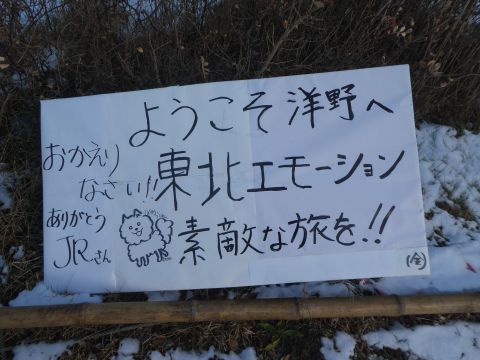 ようこそ洋野へ
おかえり
なさい!!
東北エモーション
ありがとう
JRさん
素敵な旅を!!